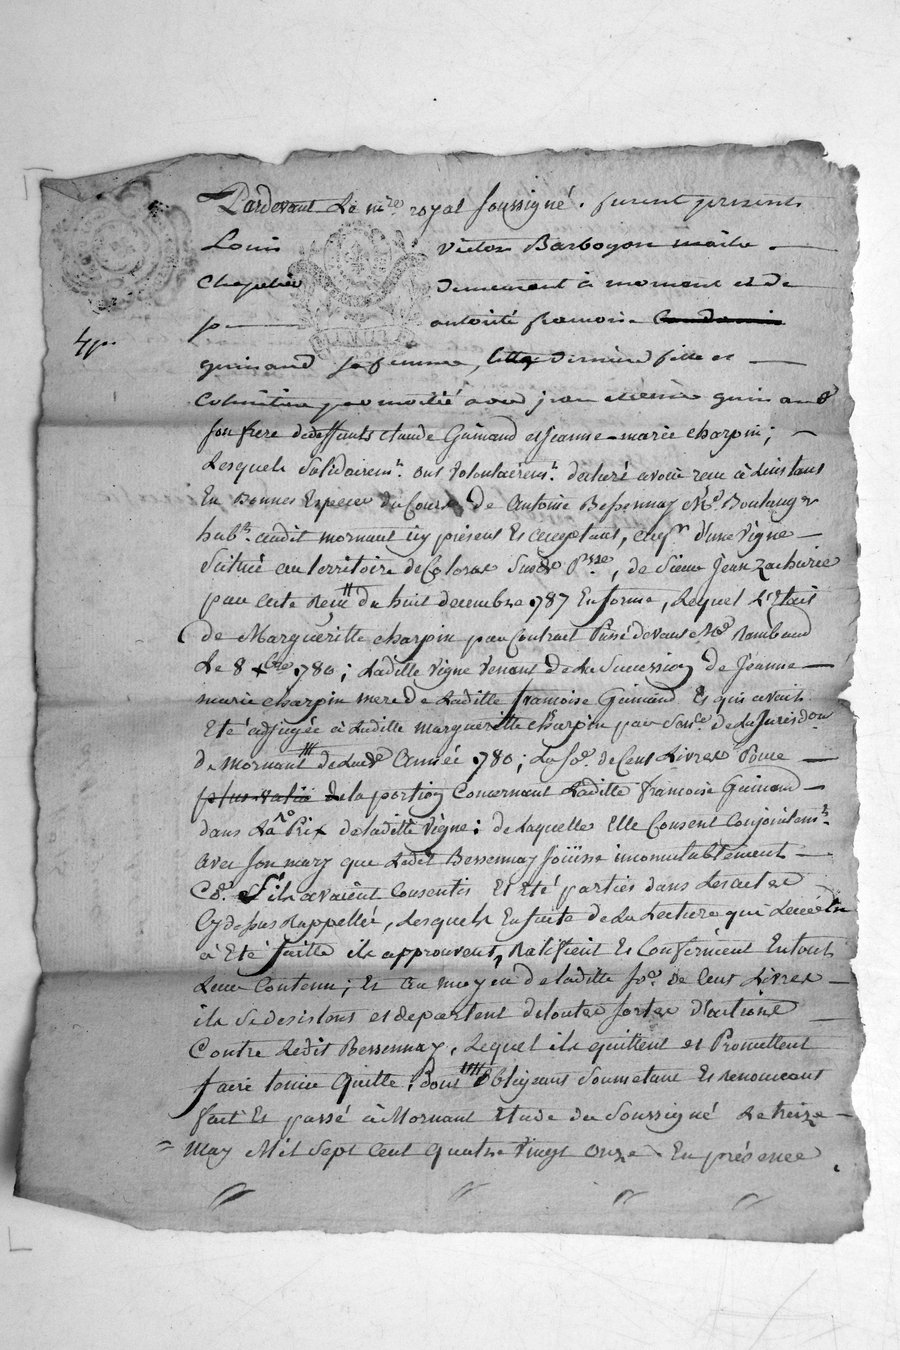 Pardevant Le nre royal soussigné. furent presents
Louis Victor Barboyon maitre
Chapelier demeurant à mornant et de
son autorité françoise
guinand sa femme, cette derniere fille et
cohéritiere par moitié avec jean etienne guinand
son frere dedeffunts claude Guinand et jeanne-marie charpin;
Lesquels solidairemt. ont volontairemt. declaré avoir recu à Linstant
En Bonnes Especes du Cours de Antoine Bessennay Me. Boulanger
habt. audit mornant icy présent Et acceptant, d'une Vigne
Située au territoire de Sieur Jean Zacharie
par acte Recu du huit decembre 1787 En forme, Lequel
de Margueritte charpin par Contrat Passé devant Me Rambaud
Le 8 Xbre 1780; Ladite Vigne Venant de La Succession de Jeanne
marie charpin mere de Ladite françoise Guinand Et qui avait
Eté adjugée à Ladite margueritte charpin par Sance. de La Jurisdon
De Mornant de Lade Année 1780; La so. de Cent Livres Pour
la portion Concernant Ladite françoise Guinand
dans La Prix de ladite Vigne; de Laquelle Elle Consent Conjointemt.
avec son mary que Ledit Bessennay Joüisse inconmutablement
Co. S'ils avaient Consentis Et Eté parties dans Les actes
Cydessus Rappellés, Lesquels Ensuite de La Lecture qui Leur
à Eté faitte ils approuvent, Ratiffient Et Confirment En tout
Leur Contenu; Et au moyen de ladite so. de Cent Livres
ils se desistent et departent de toutes sortes d'actions
Contre Ledit Bessennay, Lequel ils quittent et Promettent
faire tenir Quitte, dont Obligeant Soumetant Et renonceant
fait Et passé à Mornant Etude du Soussigné Le treize
May Mil Sept Cent Quatre Vingt Onze En présence